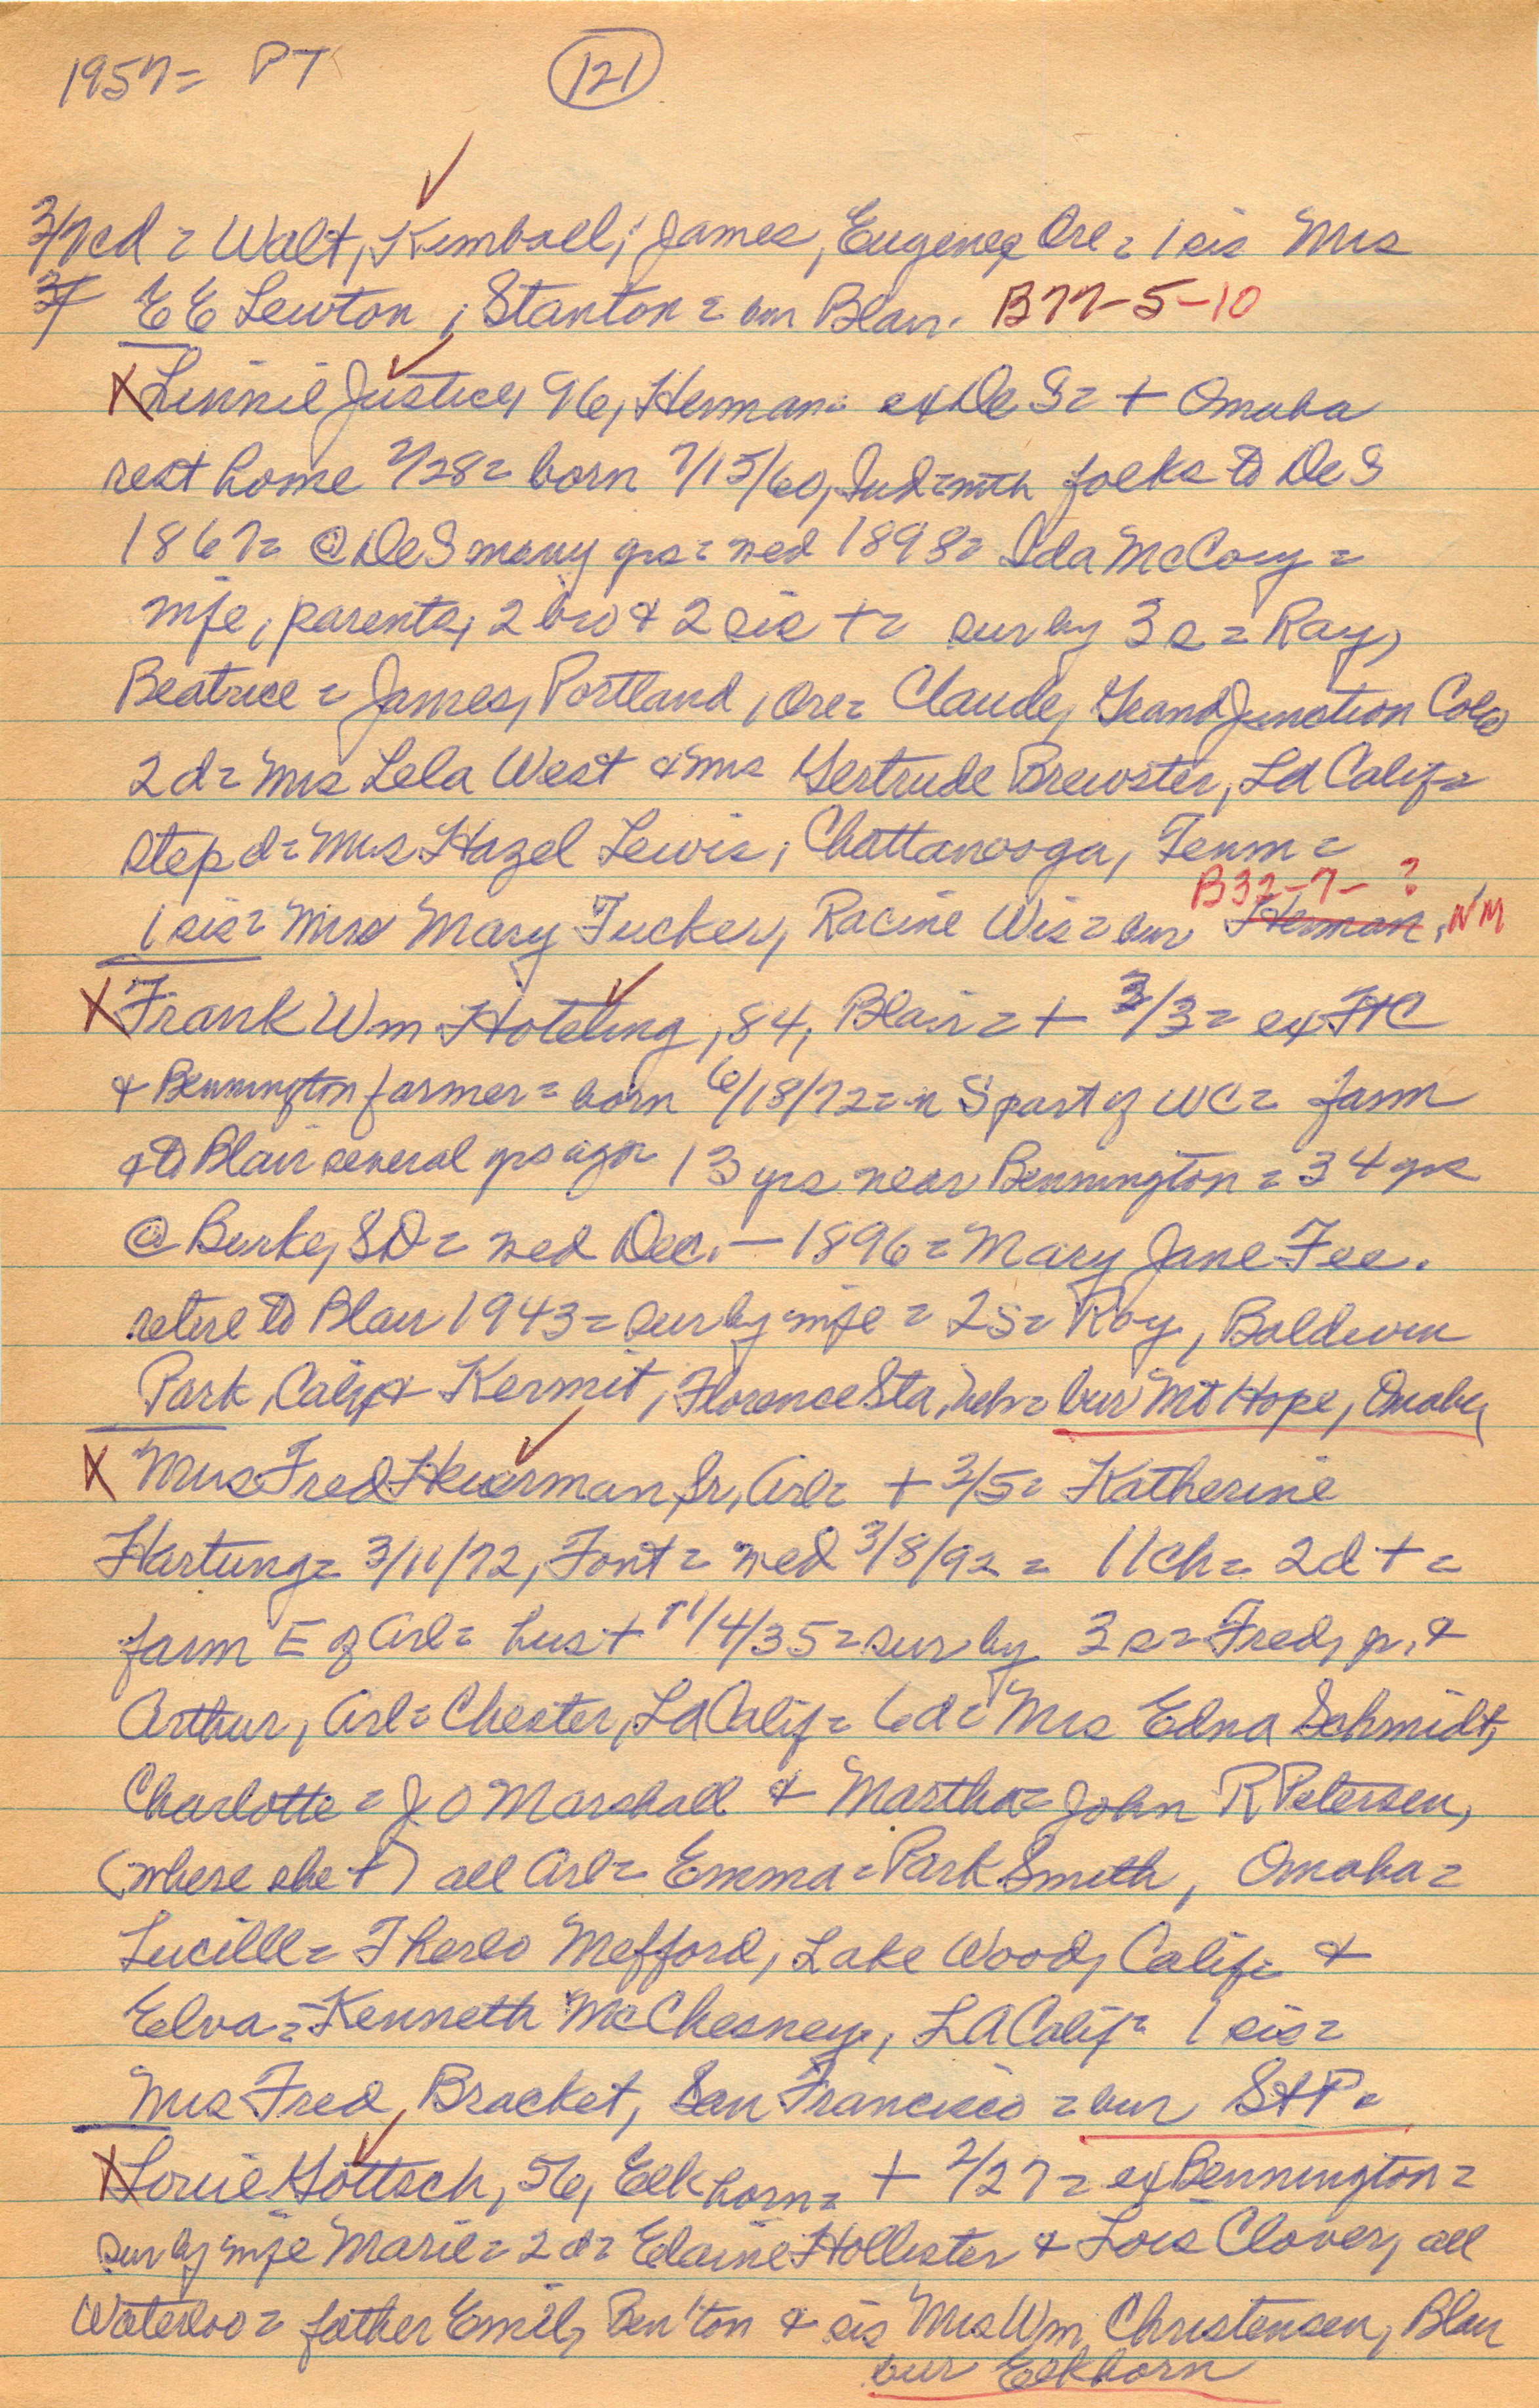 1957= PT (121)
3/7 cd = Walt, Kimball; James, Eugene, Ore = 1 sis Mrs
E E Lewton, Stanton = bur Blair. B77-5-10
X Linnie Justice, 96, Herman = ex De S = + Omaha
rest home 2/28 = born 7/15/60, Ind = with folks to De S
1867 = @ De S many yrs = wed 1898 = Ida McCoy =
wife, parents, 2 bro & 2 sis + = sur by 3 s = Ray,
Beatrice = James, Portland, Ore = Claude, Grand Junction Colo
2 d = Mrs Lela West & Mrs Gertrude Brewster, LA Calif =
step d = Mrs Hazel Lewis, Chattanooga, Tenn =
B32-7-?
1 sis = Mrs Mary Tucker, Racine Wis = bur Herman, NM
X Frank Wm Hoteling, 84, Blair = + 3/3 = ex FtC
& Bennington farmer = born 6/18/72 = in S part of WC = farm
& to Blair several yrs ago 13 yrs near Bennington = 34 yrs
@ Burke, SD = wed Dec. — 1896 = Mary Jane Fee.
retire to Blair 1943 = sur by wife = 2 s = Roy, Baldwin
Park, Calif & Kermit, Florence Sta, Neb = bur Mt Hope, Omaha
X Mrs Fred Heuerman, Sr, Arl = + 3/5 = Katherine
Hartung = 3/11/72, Font = wed 3/8/92 = 11 ch = 2 d + =
farm E of Arl = hus + 11/4/35 = sur by 3 s = Fred, jr, &
Arthur, Arl = Chester, LA Calif = 6 d = Mrs Edna Schmidt,
Charlotte = J O Marshall & Martha = John R Petersen,
(where she +) all Arl = Emma = Park Smith, Omaha =
Lucille = Therlo Mefford, Lake Wood, Calif = &
Elva = Kenneth McChesney, LA Calif = 1 sis =
Mrs Fred Bracket, San Francisco = bur St P =
X Louie Gottsch, 56, Elkhorn = + 2/27 = ex Bennington =
sur by wife Marie = 2 d = Elaine Hollister & Lois Clover, all
Waterloo = father Emil, Ben'ton & sis Mrs Wm Christensen, Blair
bur Elkhorn